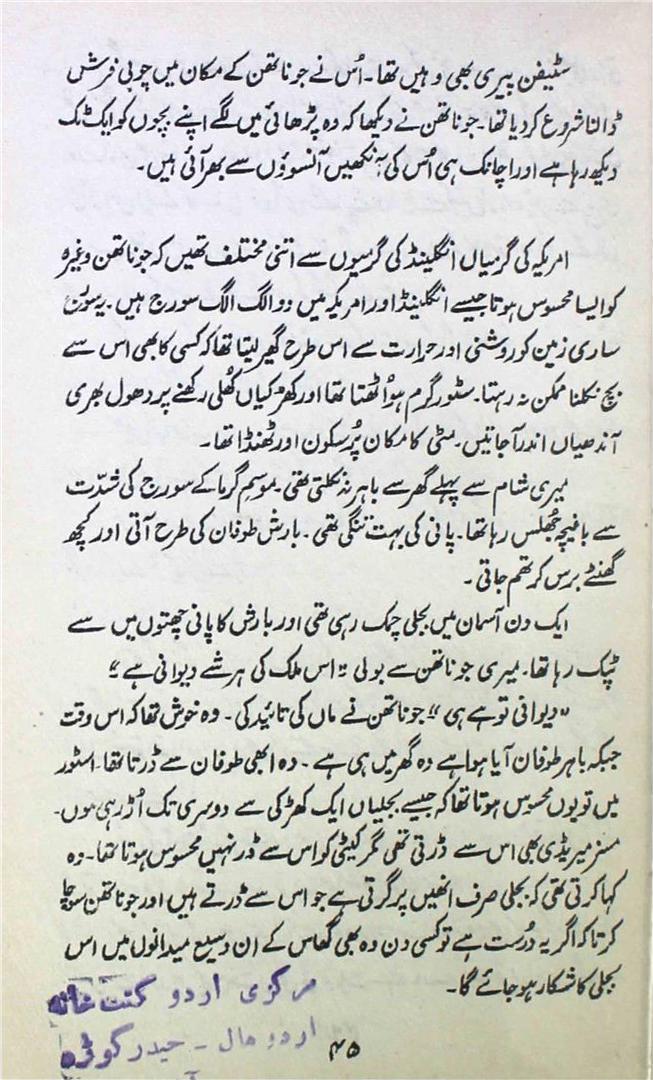 سٹیفن پیری بھی وہیں تھا۔ اُس نے جوناتھن کے مکان میں چوبی فرش
ڈالنا شروع کردیا تھا۔ جوناتھن نے دیکھا کہ وہ پڑھائی میں لگے اپنے بچوں کو ایک ٹک
دیکھ رہا ہے اور اچانک ہی اُس کی آنکھیں آنسوؤں سے بھر آئی ہیں۔
امریکہ کی گرمیاں انگلینڈ کی گرمیوں سے اتنی مختلف تھیں کہ جوناتھن وغیرہ
کو ایسا محسوس ہوتا جیسے انگلینڈ اور امریکہ میں دو الگ الگ سورج ہیں۔ یہ سورج
ساری زمین کو روشنی اور حرارت سے اس طرح گھیر لیتا تھا کہ کسی کا بھی اس سے
بچ نکلنا ممکن نہ رہتا۔ سٹور گرم ہو اُٹھتا تھا اور کھڑکیاں کھُلی رکھنے پر دھول بھری
آندھیاں اندر آجاتیں۔ مٹی کا مکان پُرسکون اور ٹھنڈا تھا۔
میری شام سے پہلے گھر سے باہر نہ نکلتی تھی۔ موسم گرما کے سورج کی شدّت
سے باغیچہ جھُلس رہا تھا۔ پانی کی بہت تنگی تھی۔ بارش طوفان کی طرح آتی اور کچھ
گھنٹے برس کر تھم جاتی۔
ایک دن آسمان میں بجلی چمک رہی تھی اور بارش کا پانی چھتوں میں سے
ٹپک رہا تھا۔ میری جوناتھن سے بولی "اس ملک کی ہر شے دیوانی ہے"
"دیوانی تو ہے ہی" جوناتھن نے ماں کی تائید کی۔ وہ خوش تھا کہ اس وقت
جبکہ باہر طوفان آیا ہوا ہے وہ گھر میں ہی ہے۔ وہ ابھی طوفان سے ڈرتا تھا۔ اسٹور
میں تو یوں محسوس ہوتا تھا کہ جیسے بجلیاں ایک کھڑکی سے دوسری تک اُڑ رہی ہوں۔
مسز میریڈی بھی اس سے ڈرتی تھی مگر کیٹی کو اس سے ڈر نہیں محسوس ہوتا تھا۔ وہ
کہا کرتی تھی کہ بجلی صرف انھیں پر گرتی ہے جو اس سے ڈرتے ہیں اور جوناتھن سوچا
کرتا کہ اگر یہ دُرست ہے تو کسی دن وہ بھی گھاس کے ان وسیع میدانوں میں اس
بجلی کا شکار ہو جائے گا۔
مرکزی اردو کتب خانہ
اردو ہال۔ حیدر گوڑہ
۴۵